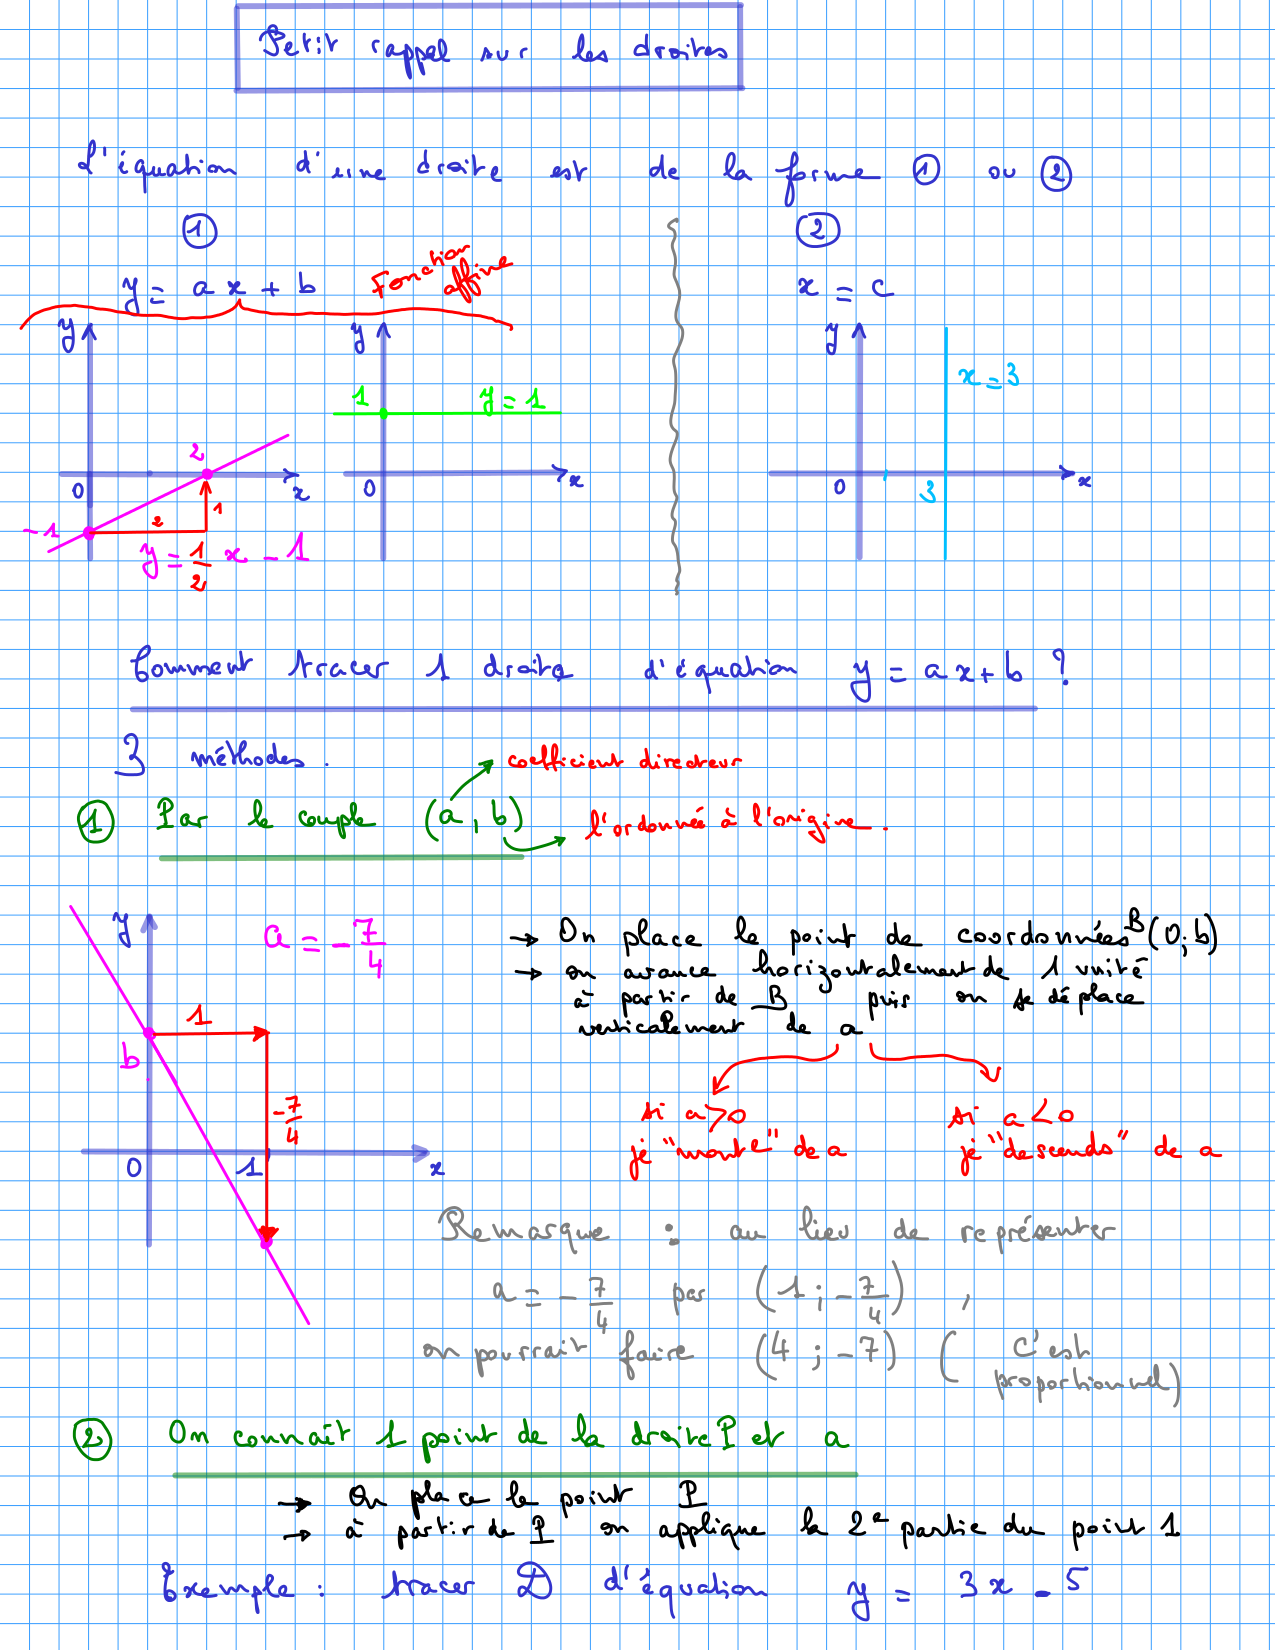 Petit rappel sur les droites
L'équation d'une droite est de la forme ① ou ②
①
②
y = ax + b
Fonction affine
x = c
y
y
y
1
y = 1
x = 3
2
0
x
0
x
0
3
x
-1
2
1
y = 1/2 x - 1
Comment tracer 1 droite d'équation y = ax + b ?
3 méthodes.
coefficient directeur
① Par le couple (a, b)
l'ordonnée à l'origine.
y
a = -7/4
→ On place le point de coordonnées B (0; b)
→ on avance horizontalement de 1 unité
à partir de B puis on se déplace
verticalement de a
1
b
-7/4
si a > 0
je "monte" de a
si a < 0
je "descends" de a
0
1
x
Remarque : au lieu de représenter
a = -7/4 par (1 ; -7/4) ,
on pourrait faire (4 ; -7) ( C'est
proportionnel)
② On connaît 1 point de la droite P et a
→ On place le point P
→ à partir de P on applique la 2e partie du point 1
Exemple : tracer D d'équation y = 3x - 5